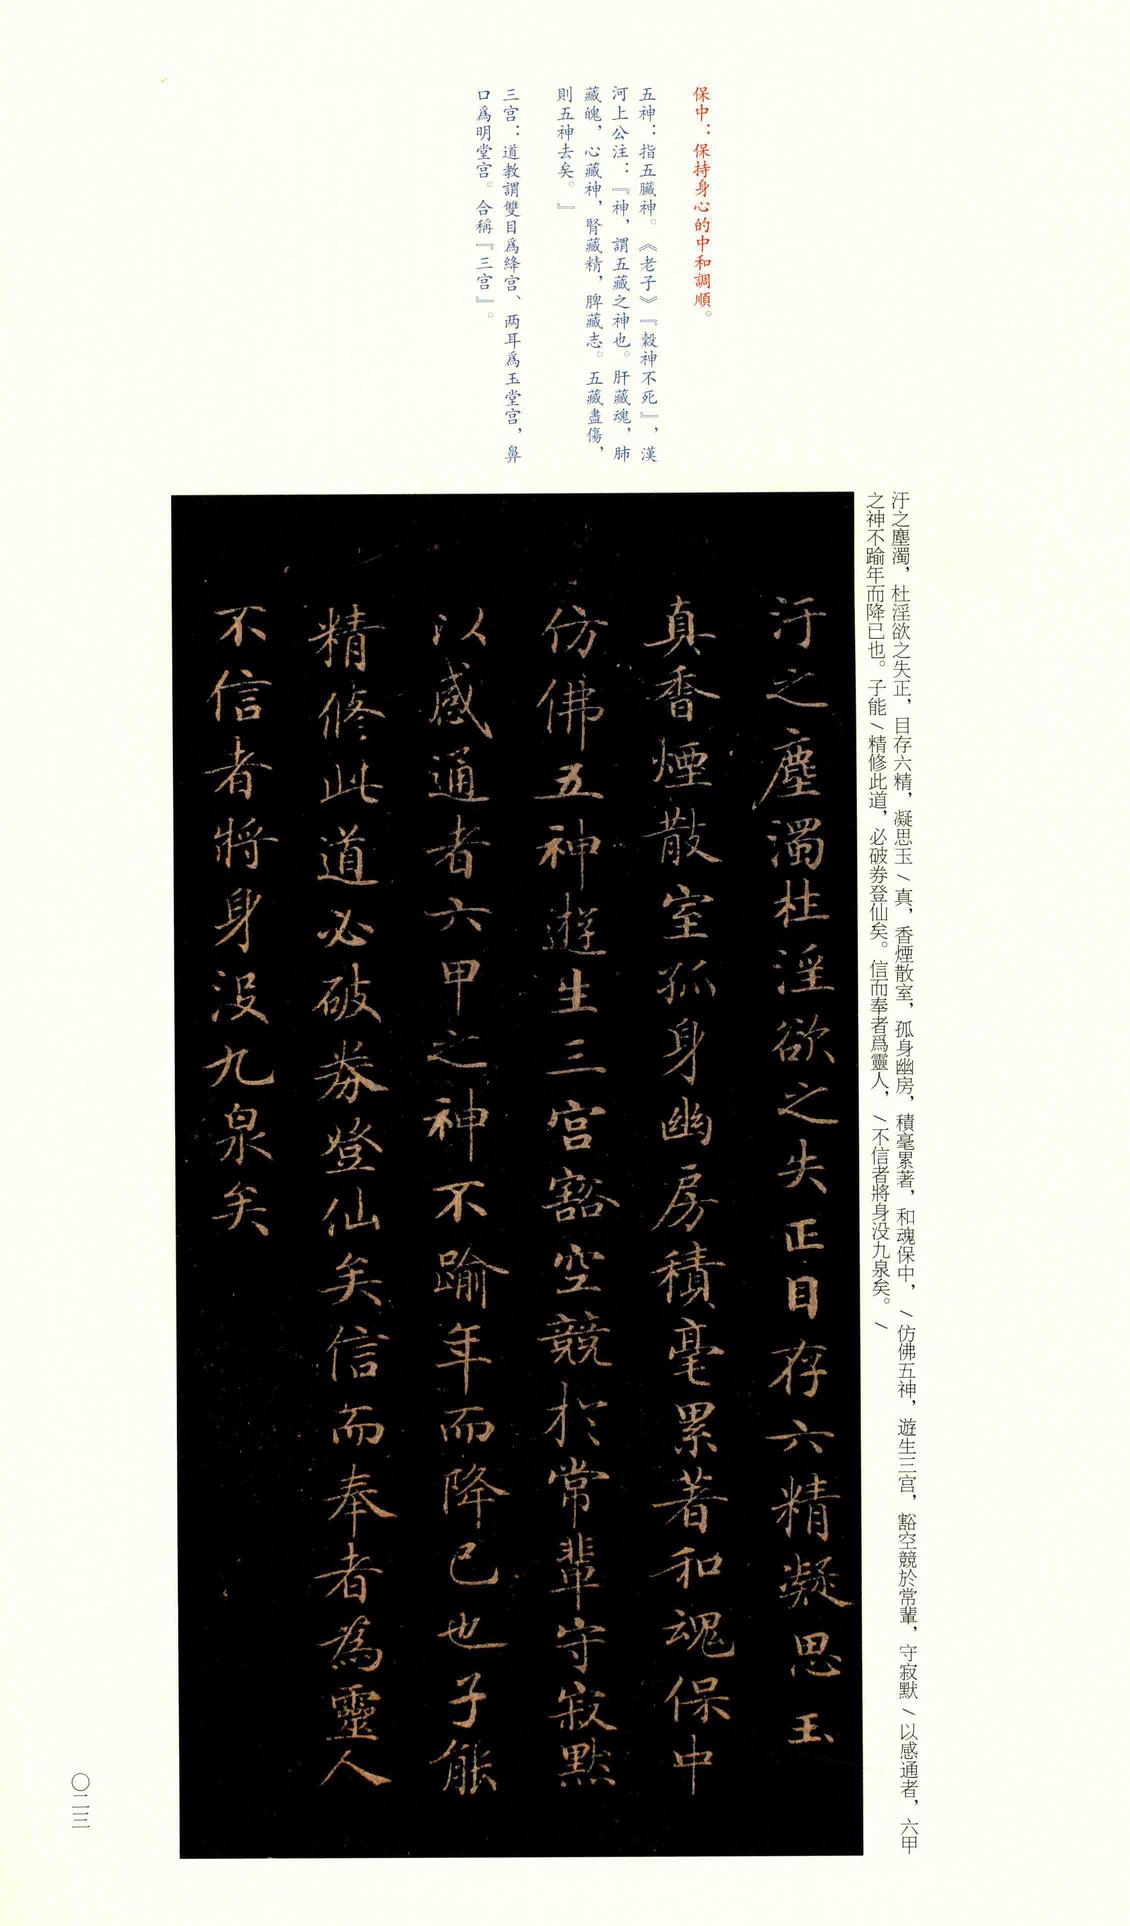 保中：保持身心的中和調順。
五神：指五臟神。《老子》『穀神不死』，漢
河上公注：『神，謂五藏之神也。肝藏魂，肺
藏魄，心藏神，腎藏精，脾藏志。五藏盡傷，
則五神去矣。』
三宫：道教謂雙目爲絳宫、两耳爲玉堂宫，鼻
口爲明堂宫。合稱『三宫』。
汙之塵濁，杜淫欲之失正，目存六精，凝思玉／真，香煙散室，孤身幽房，積毫累著，和魂保中，／仿佛五神，遊生三宫，豁空競於常輩，守寂默／以感通者，六甲
之神不踰年而降已也。子能／精修此道，必破券登仙矣。信而奉者爲靈人，／不信者將身没九泉矣。／
汙之塵濁杜淫欲之失正目存六精凝思玉
真香煙散室孤身幽房積毫累著和魂保中
仿佛五神遊生三宫豁空競於常輩守寂默
以感通者六甲之神不踰年而降已也子能
精修此道必破券登仙矣信而奉者為靈人
不信者將身没九泉矣
〇二三